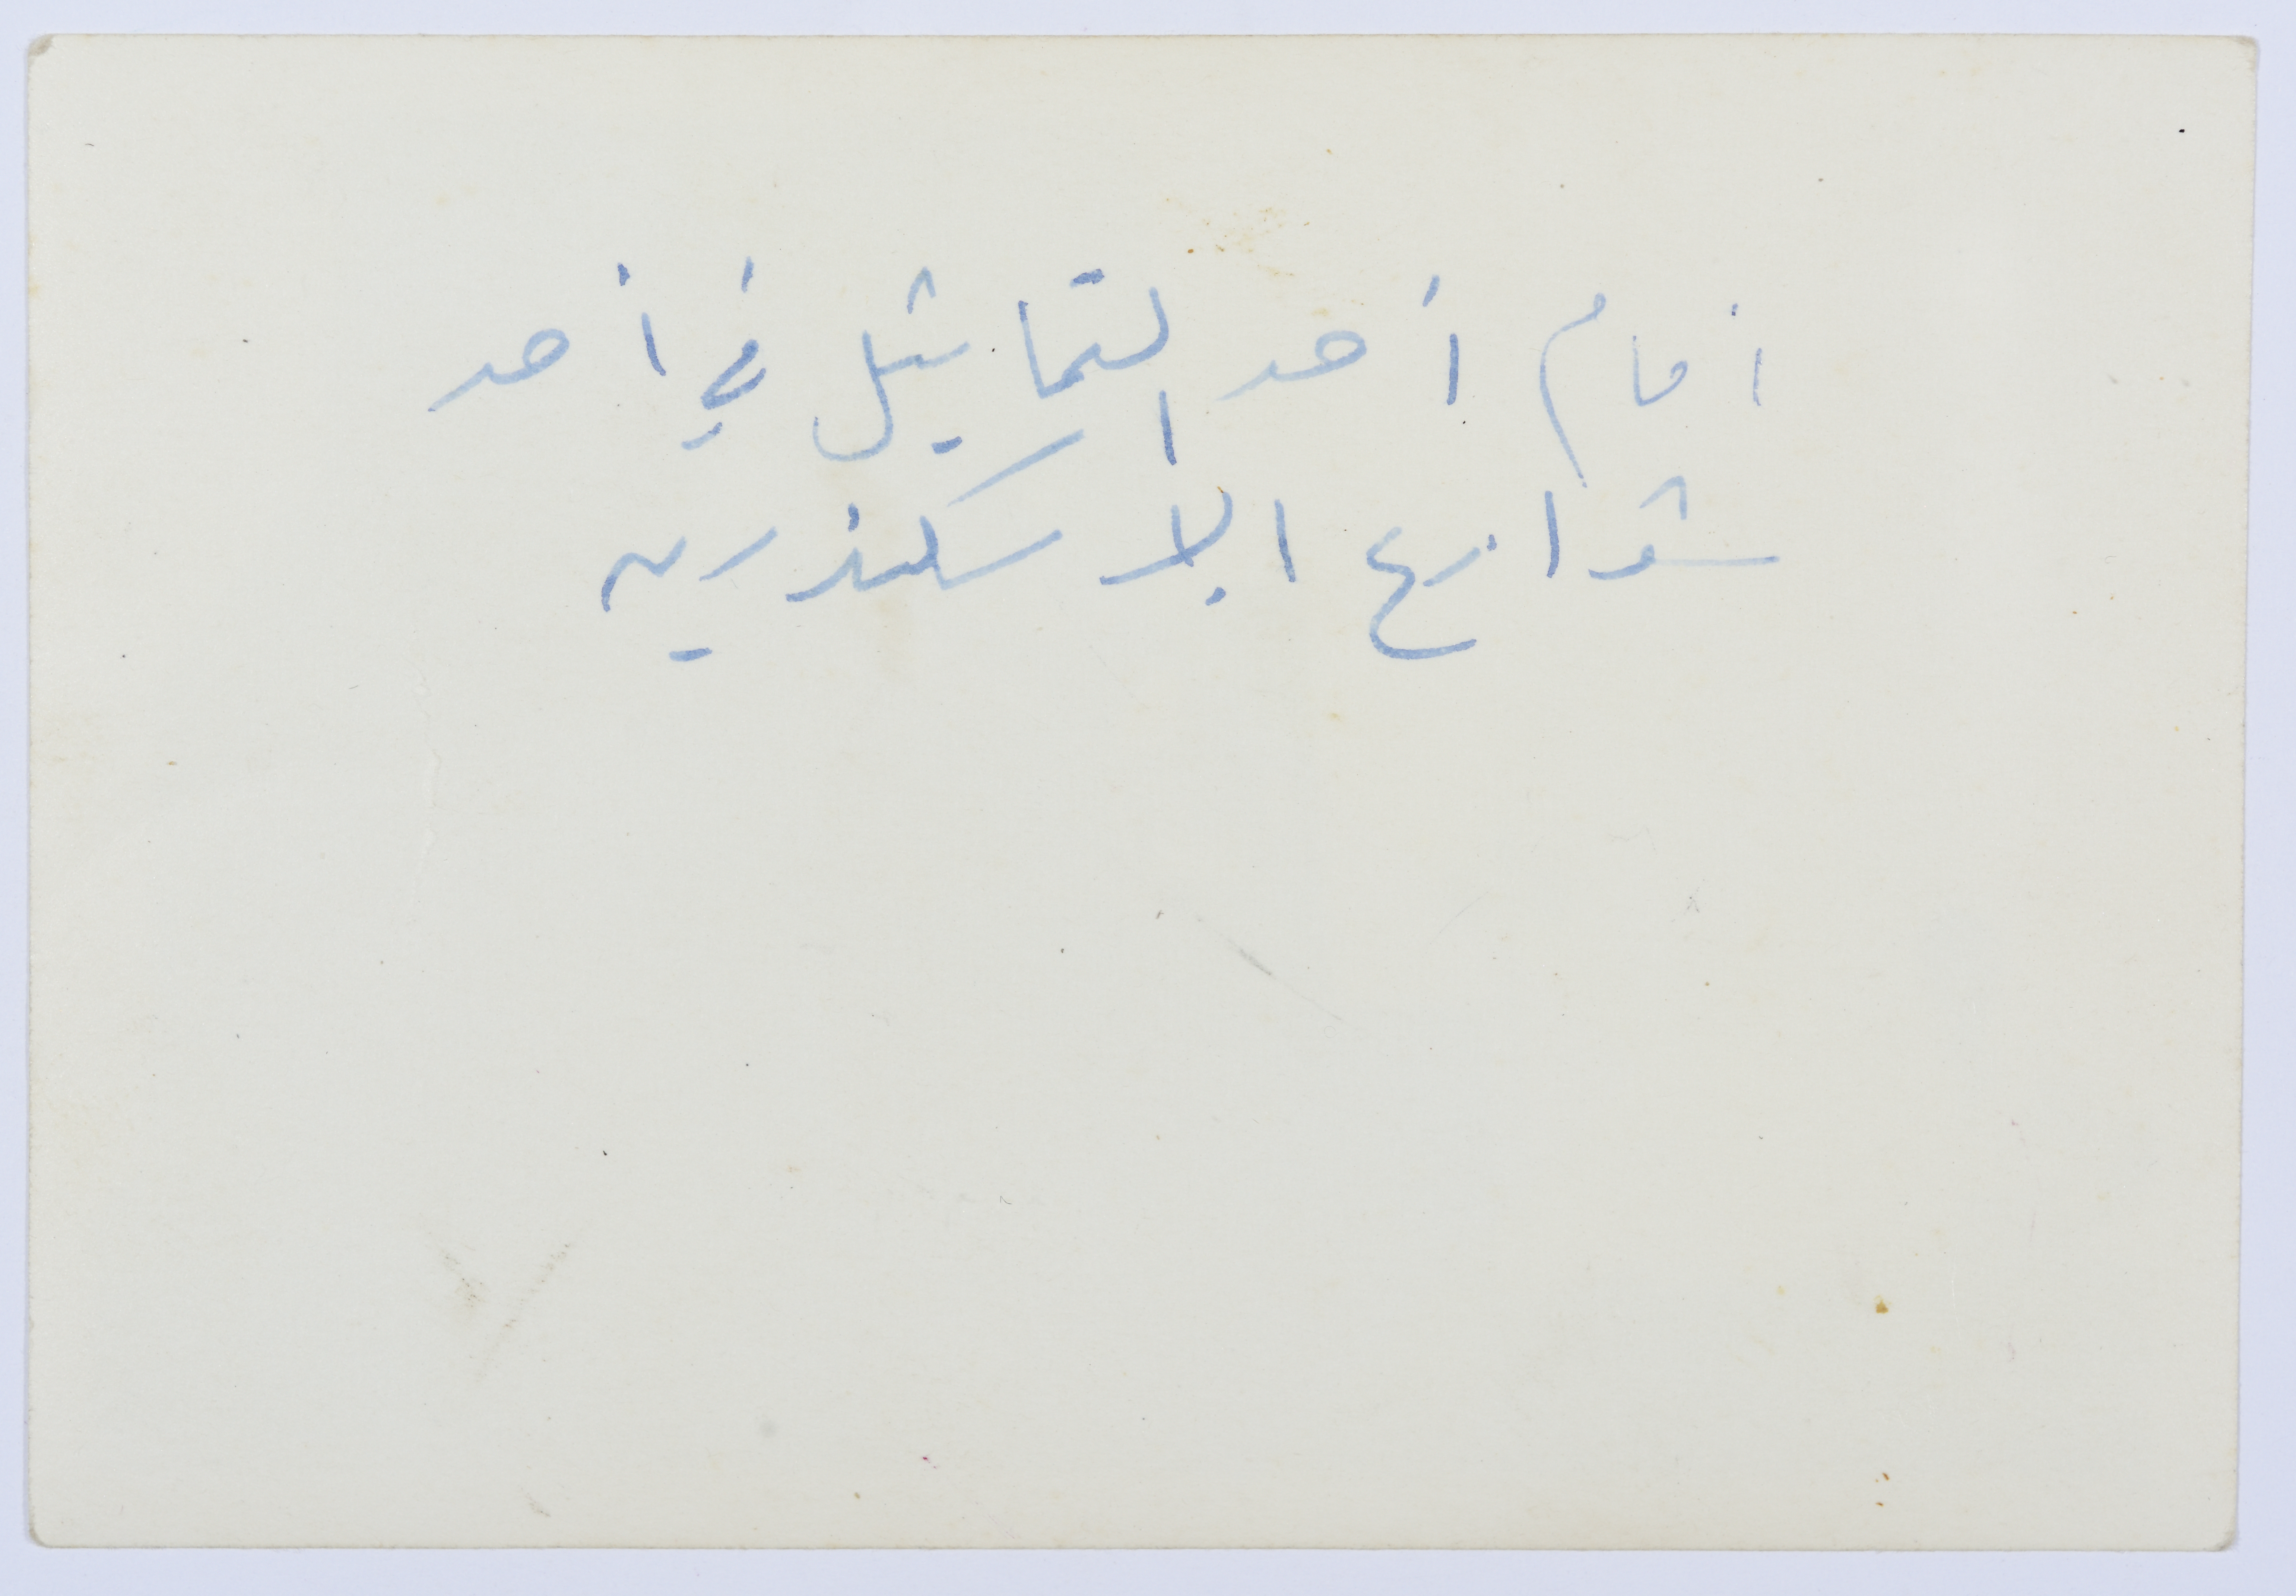 أمام أحد التماثيل في أحد
شوارع الإسكندريه